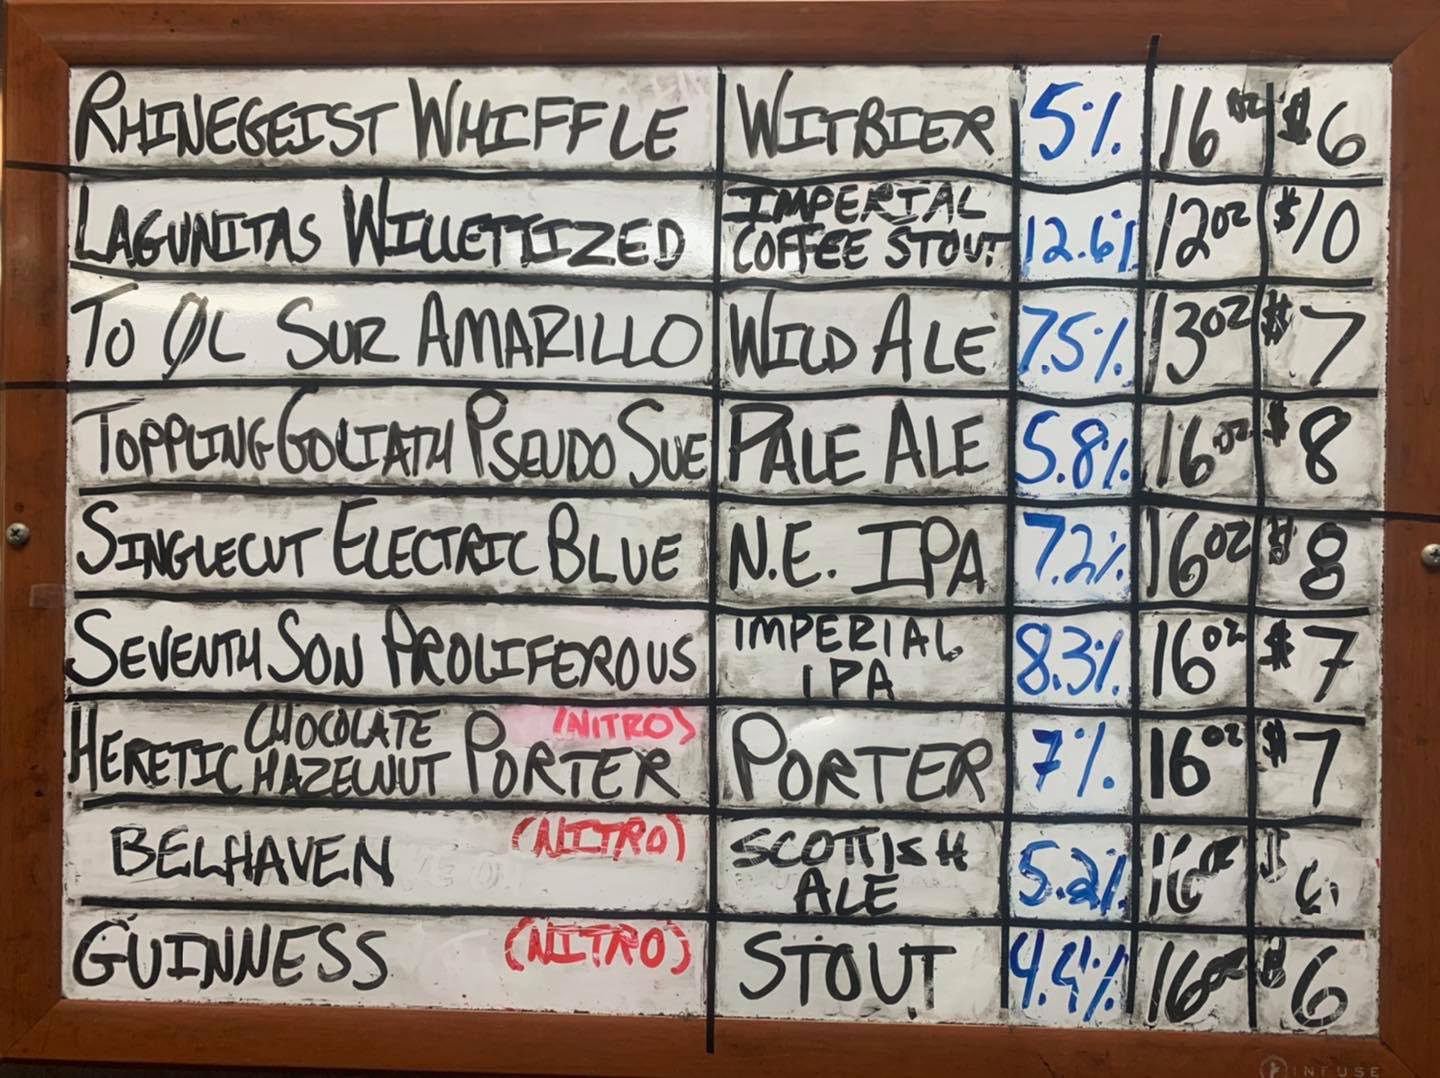 RHINEGEIST WHIFFLE WITBIER 5% 16oz $6
LAGUNITAS WILLETTIZED IMPERIAL COFFEE STOUT 12.6% 12oz $10
TO ØL SUR AMARILLO WILD ALE 7.5% 13oz $7
TOPPLING GOLIATH PSEUDO SUE PALE ALE 5.8% 16oz $8
SINGLECUT ELECTRIC BLUE N.E. IPA 7.2% 16oz $8
SEVENTH SON PROLIFEROUS IMPERIAL IPA 8.3% 16oz $7
HERETIC CHOCOLATE HAZELNUT PORTER (NITRO) PORTER 7% 16oz $7
BELHAVEN (NITRO) SCOTTISH ALE 5.2% 16oz $6
GUINNESS (NITRO) STOUT 4.4% 16oz $6
INFUSE